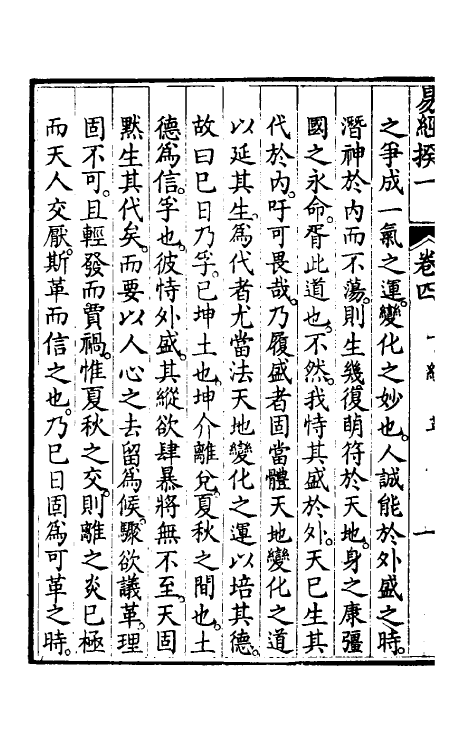 易經揆一
卷四
下經
一
之爭成一氣之運變化之妙也人誠能於外盛之時
潛神於内而不蕩則生幾復萌符於天地身之康彊
國之永命胥此道也不然我恃其盛於外天已生其
代於内吁可畏哉乃履盛者固當體天地變化之道
以延其生為代者尤當法天地變化之運以培其德
故曰巳日乃孚巳坤土也坤介離兌夏秋之間也土
德為信孚也彼恃外盛其縱欲肆暴將無不至天固
黙生其代矣而要以人心之去留為候驟欲議革理
固不可且輕發而賈禍惟夏秋之交則離之炎已極
而天人交厭斯革而信之也乃巳日固為可革之時